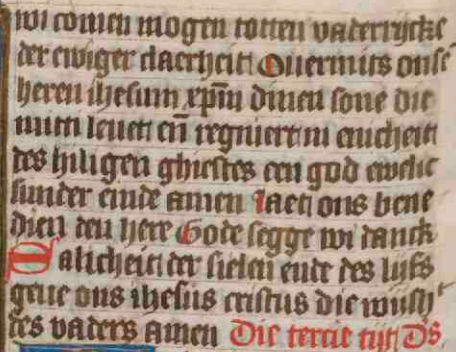 wi comen mogen totten vaderrijcke
der ewiger claerheit Ouermits onsẽ
heren ihesum xpm̄ dinen sone die
mitti leuet eñ regniert in enicheit
des hiligen ghiestes een god ewelic
sunder einde amen Laet ons bene
dien den here Gode segge wi danck
Salicheit der sielen ende des lijfs
geue ons ihesus cristus die wijsh^t
des vaders amen Die tercie tijt D̄s